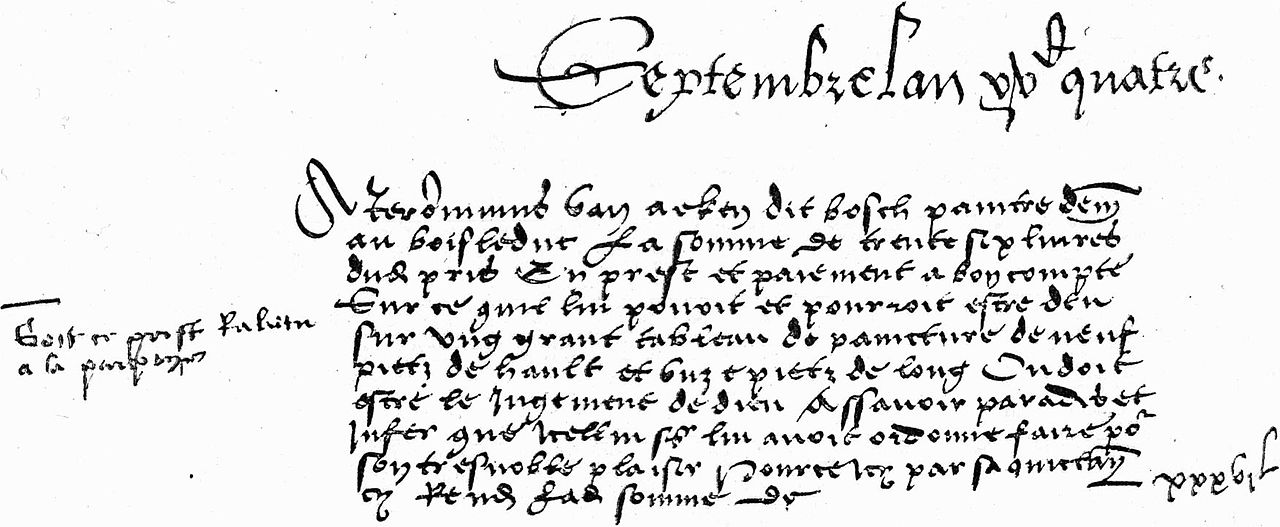 Septembre l'an xvᶜ quatre.
A Jeronimus van aeken dit bosch painctre dem̄
au bois le duc la somme de trente six livres
dud pris En prest et paiement a bon compte
Sur ce quil luy povoit et pourroit estre deu
sur ung grant tableau de paincture de neuf
pietz de hault et unze pietz de long Ou doit
estre le Jugement de dieu Assavoir paradis et
Infer que Icelluy sr luy avoit ordonne faire por
son tresnoble plaisir Pour ce Icy par sa quictan̄
cy Rend lad somme de
xxxvi l
Soit ce prest
a la